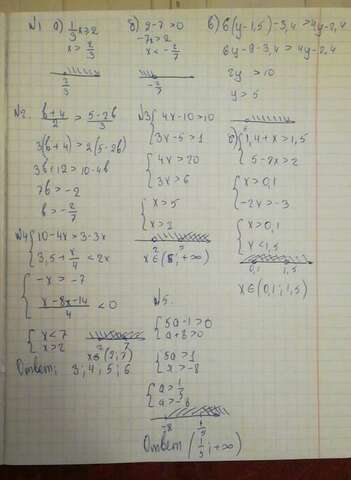 №1 а) 1/3x≥2
x > x/3
2/3
б) 2-7 >0
-7x>2
x < -2/7
-2/7
в) 6(y-1,5)-3,4 >4y-2,4
6y-9-3,4 >4y-2,4
2y >10
y > 5
№2. b+4/2 > 5-2b/3
3(b+4) >2(5-2b)
3b+12 >10-4b
7b >-2
b >-2/7
№3 { 4x-10>10
3x-5>1
{ 4x >20
3x >6
{ x >5
x >2
2 5
x∈(5; +∞)
б) { 1,4+x >1,5
5-2x >2
{ x >0,1
-2x >-3
{ x >0,1
x <1,5
0,1 1,5
x∈(0,1; 1,5)
№4 { 10-4x >3-3x
3,5+x/4 <2x
{ -x > -7
x-8x-14/4 <0
{ x <7
x >2
2 7
x∈(2; 7)
Ответ: 3; 4; 5; 6
№5.
{ 5a-1 >0
a+8 >0
{ 5a >1
x >-8
{ a > 1/5
a >-8
-8 1/5
Ответ (1/5; +∞)